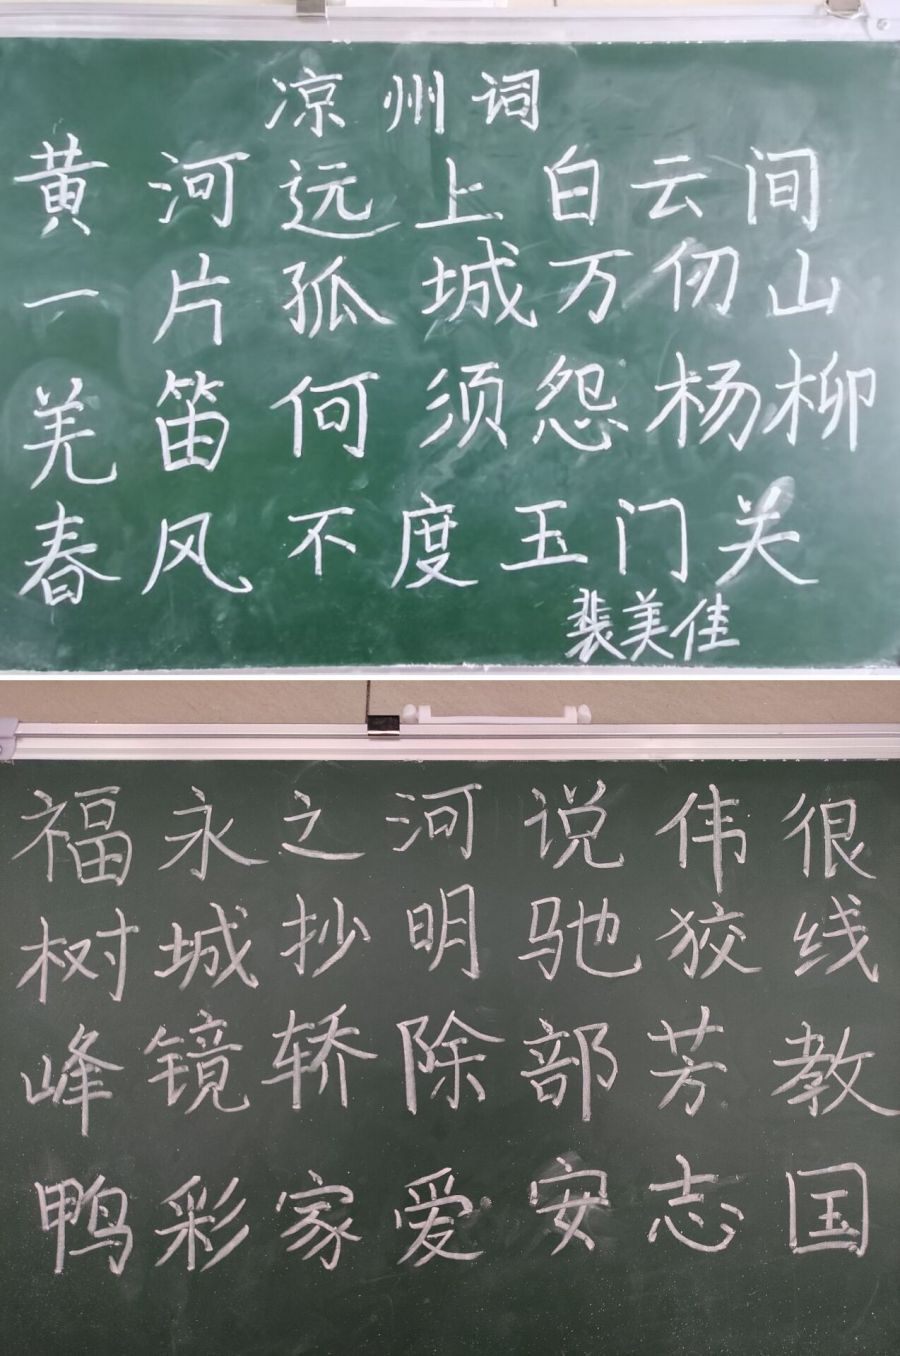 凉州词
黄河远上白云间
一片孤城万仞山
羌笛何须怨杨柳
春风不度玉门关
裴美佳
福永之河说伟很
树城抄明驰狡线
峰镜轿除部芳教
鸭彩家爱安志国